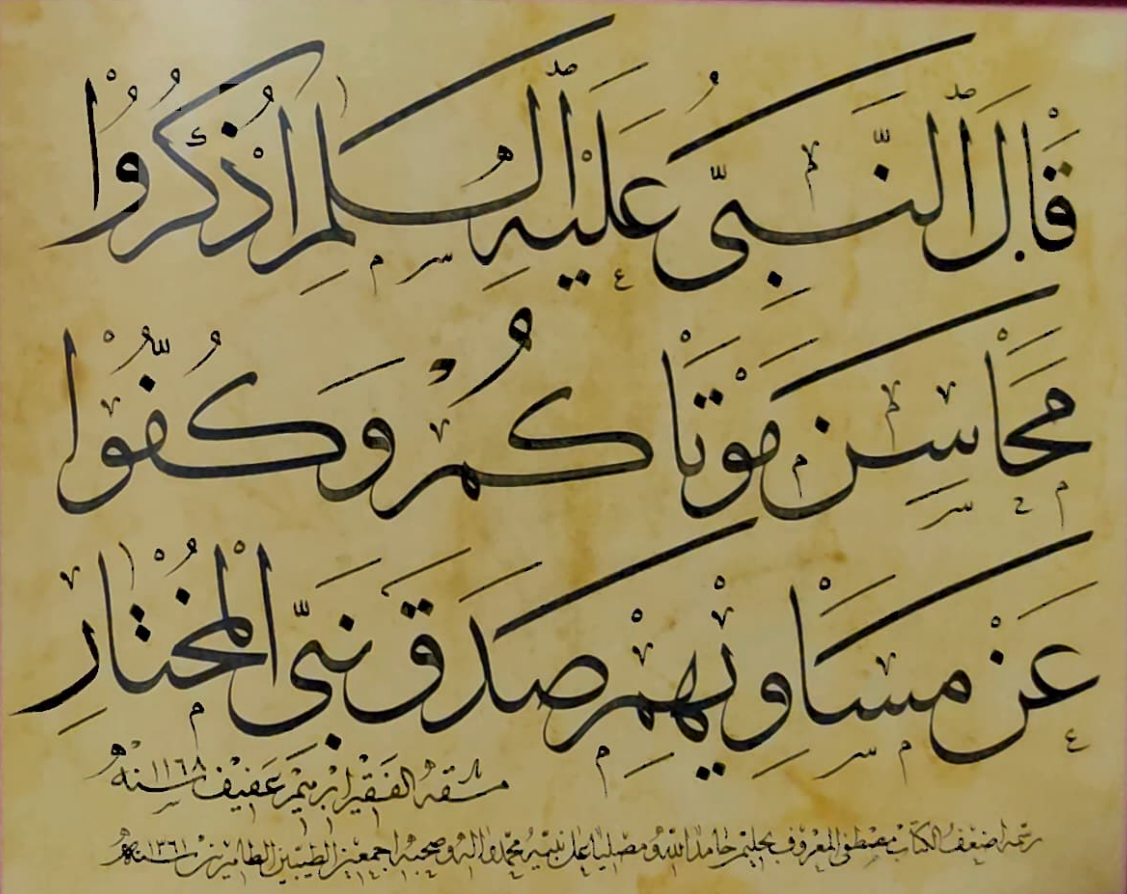 قَالَ ٱلنَّبِىُّ عَلَيْهِ ٱلسَّلَامِ اُذْكُرُوا
مَحَاسِنَ مَوْتَاكُمْ وَكُفُّوا
عَنْ مَسَاوِيهِمْ صَدَقَ نَبِىُّ الْمُخْتَارِ
مشقه الفقير ابرهيم عفيف سنه ١١٦٨
رسمه اضعف الكتاب مصطفى المعروف بحليم حامدا لله ومصليا على نبيه محمد واله وصحبه اجمعين الطيبين الطاهرين سنه ١٣٦١